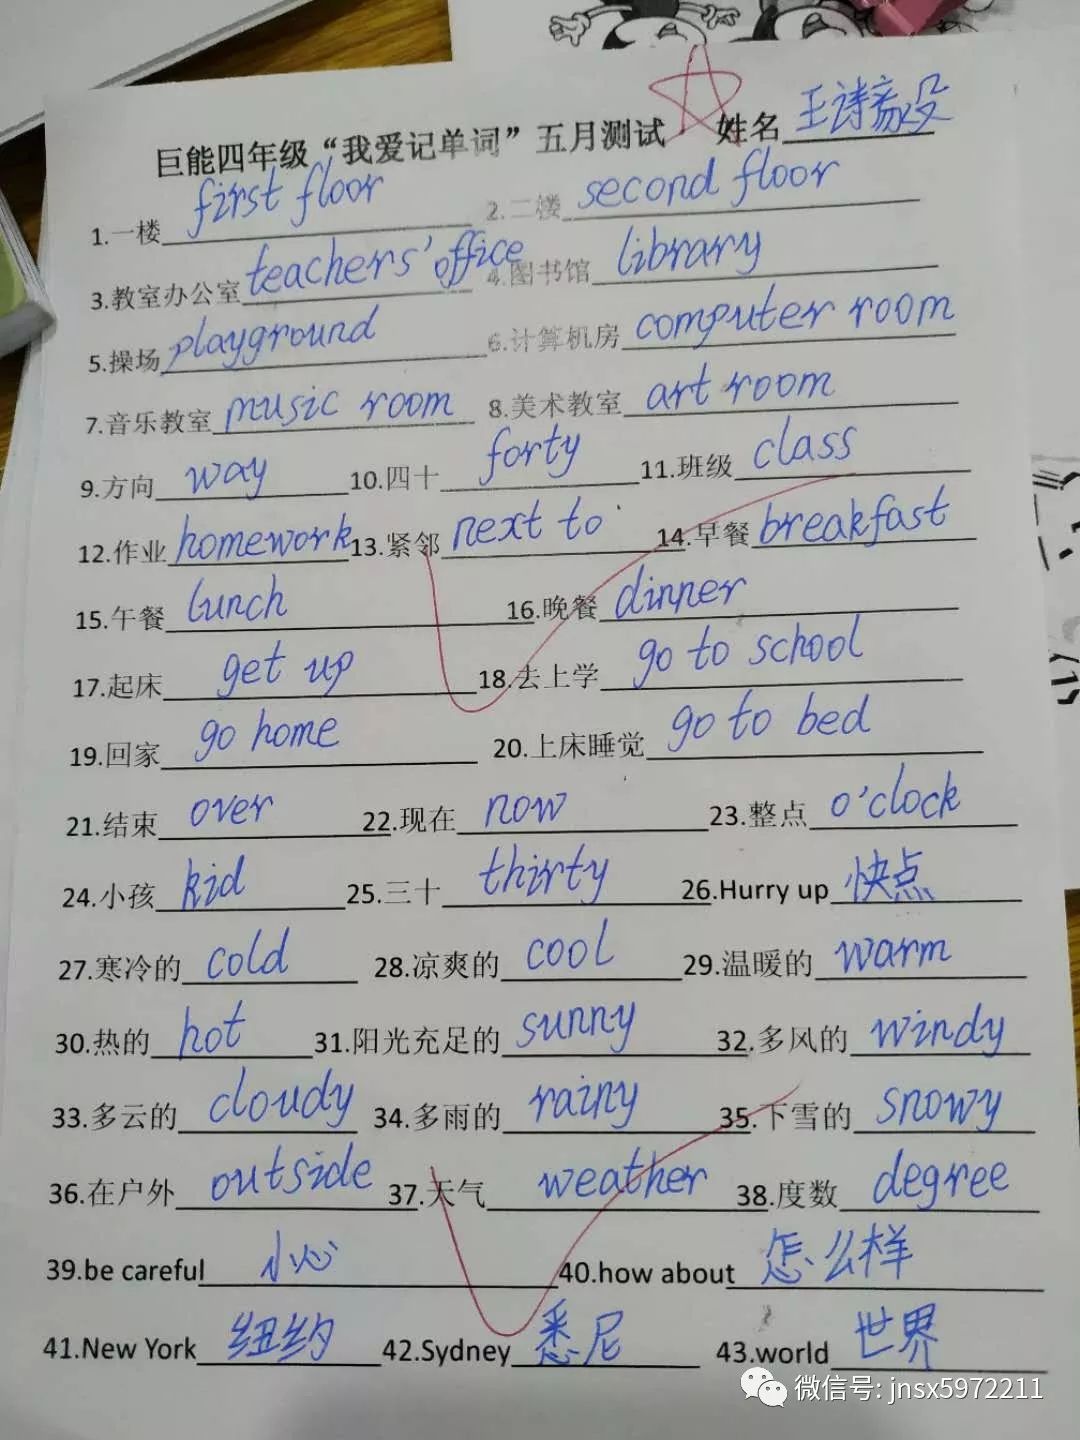 巨能四年级“我爱记单词”五月测试 姓名 王诗
1.一楼 first floor 2.二楼 second floor
3.教室办公室 teachers' office 4.图书馆 library
5.操场 playground 6.计算机房 computer room
7.音乐教室 music room 8.美术教室 art room
9.方向 way 10.四十 forty 11.班级 class
12.作业 homework 13.紧邻 next to 14.早餐 breakfast
15.午餐 lunch 16.晚餐 dinner
17.起床 get up 18.去上学 go to school
19.回家 go home 20.上床睡觉 go to bed
21.结束 over 22.现在 now 23.整点 o'clock
24.小孩 kid 25.三十 thirty 26.Hurry up 快点
27.寒冷的 cold 28.凉爽的 cool 29.温暖的 warm
30.热的 hot 31.阳光充足的 sunny 32.多风的 windy
33.多云的 cloudy 34.多雨的 rainy 35.下雪的 snowy
36.在户外 outside 37.天气 weather 38.度数 degree
39.be careful 小心 40.how about 怎么样
41.New York 纽约 42.Sydney 悉尼 43.world 世界
微信号: jnsx5972211